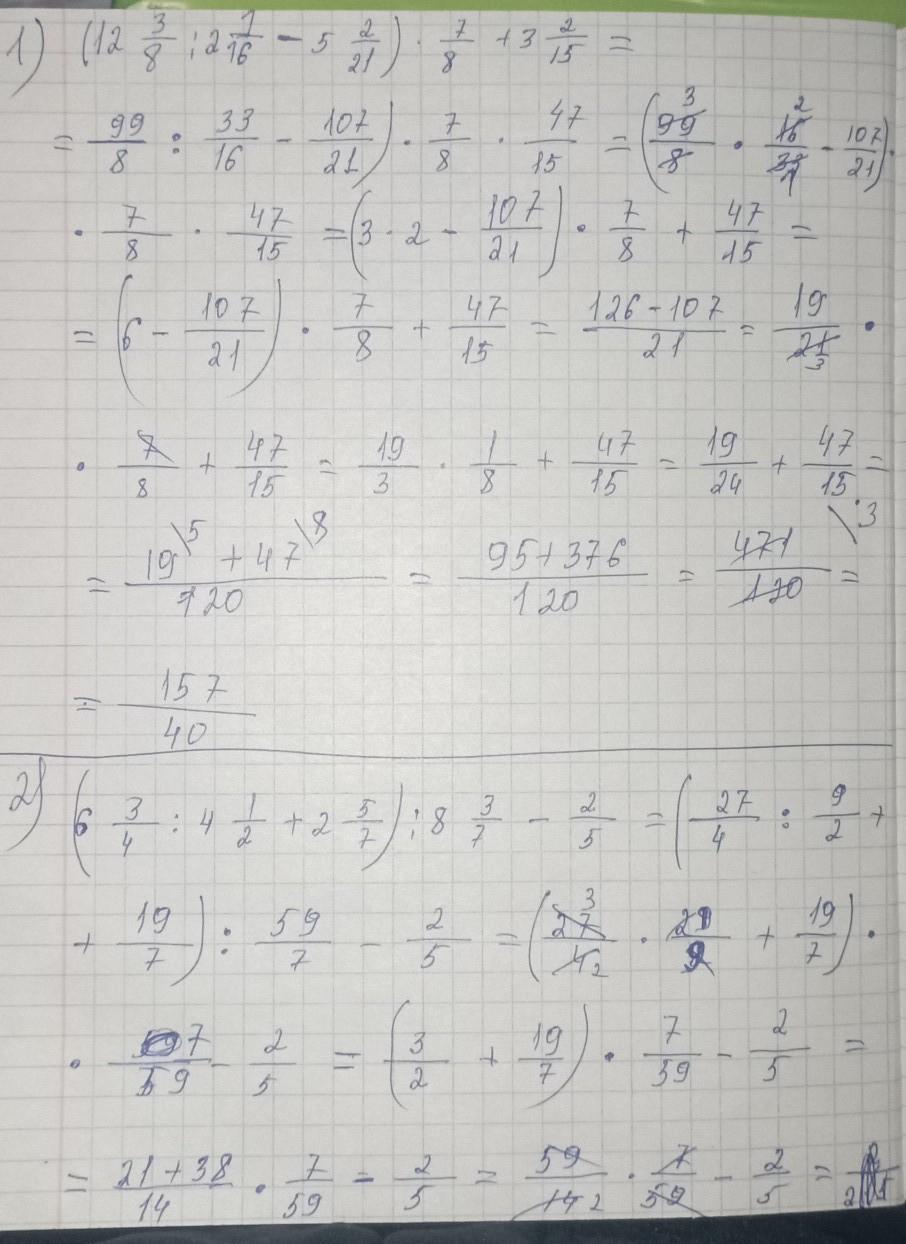 1) (12 3/8 : 2 1/16 - 5 2/21) · 7/8 + 3 2/15 =
= 99/8 : 33/16 - 107/21) · 7/8 · 47/15 = (99/8 3 · 16/33 2/1 - 107/21) ·
· 7/8 · 47/15 = (3 · 2 - 107/21) · 7/8 + 47/15 =
= (6 - 107/21) · 7/8 + 47/15 = 126-107/21 = 19/21 3 ·
· 7/8 + 47/15 = 19/3 · 1/8 + 47/15 = 19/24 + 47/15 =
= 19\5 + 47\8/120 = 95+376/120 = 471/120 \3 =
= 157/40
2) (6 3/4 : 4 1/2 + 2 5/7) : 8 3/7 - 2/5 = (27/4 : 9/2 +
+ 19/7) : 59/7 - 2/5 = (27/4 3/2 · 21/9 + 19/7) ·
· 7/59 - 2/5 = (3/2 + 19/7) · 7/59 - 2/5 =
= 21+38/14 · 7/59 - 2/5 = 59/14 2 · 7/59 - 2/5 =